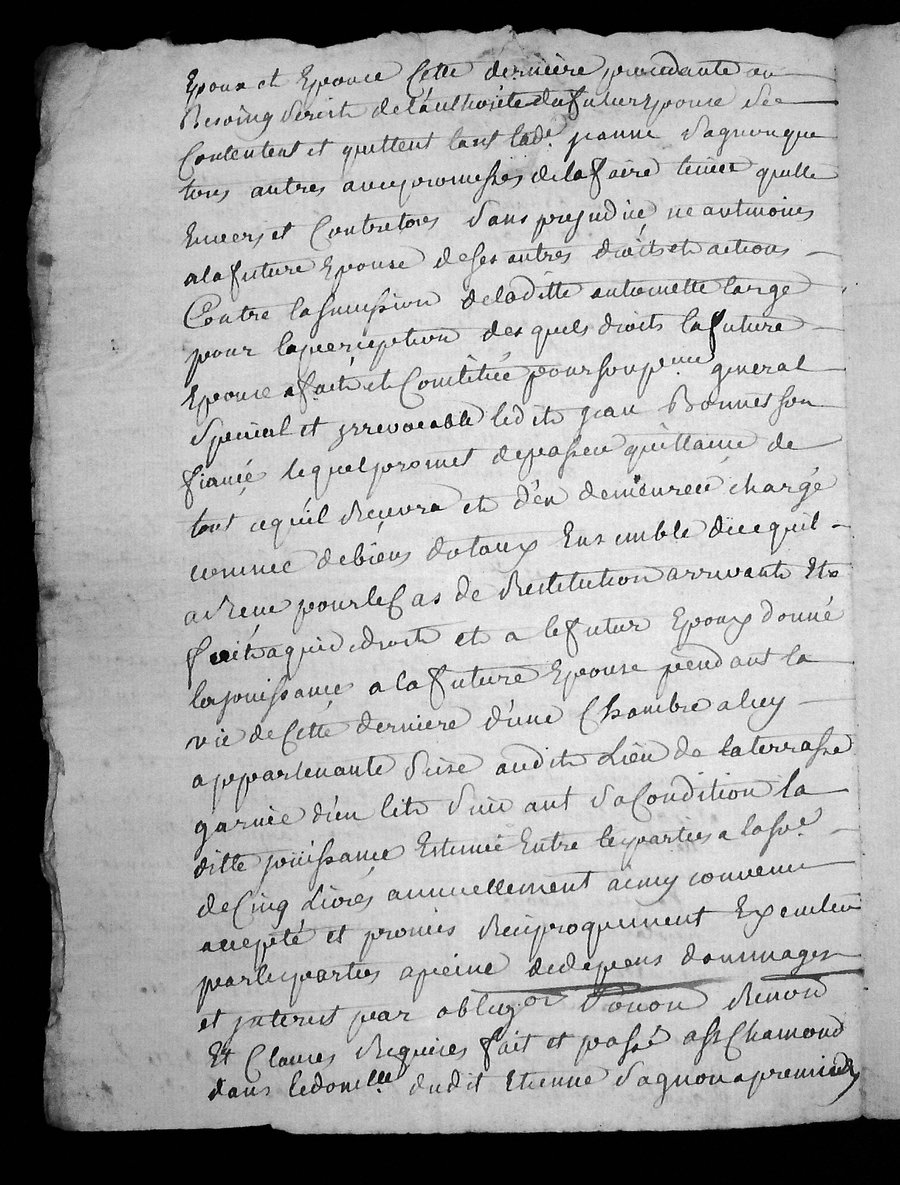 Epoux et Epouse Cette derniere procedante au
Besoing Seroit de l'authorité du futur Epoux Se
Contentent et quittent tant lade. jeanne Sagnon que
tous autres avec promesses de la faire tenir quitte
Envers et Contre tous Sans prejudice neantmoins
a la future Epouse de ses autres droits et actions
Contre la sucession de la ditte antoinette large
pour la perception des quels droits la future
Epouse a fait et Constitué pour son pcur. general
Special et irrevocable ledit jean Bonnesson
fiancé lequel promet de passer quittance de
tout ce qu'il recevra et d'en demeurer chargé
comme de biens dotaux Ensemble de ce quil
a reçu pour le Cas de Restitution arrivant Etre
fait a qui de droit et a le futur Epoux donné
la jouissance a la future Epouse pendant la
vie de Cette derniere d'une Chambre a luy
appartenante Sise audit Lieu de la terrasse
garnie d'un lit Suivant Sa Condition la
ditte joüissance Estimée Entre les parties a la sõe.
de Cinq Livres annuellement ainsy convenu
accepté et promis Reciproquement Executer
par les parties a peine de depens dommages
et interest par obligõn Renon
Et Clauses Requises fait et passé a St Chamond
dans le domille. dudit Etienne Sagnon a premier